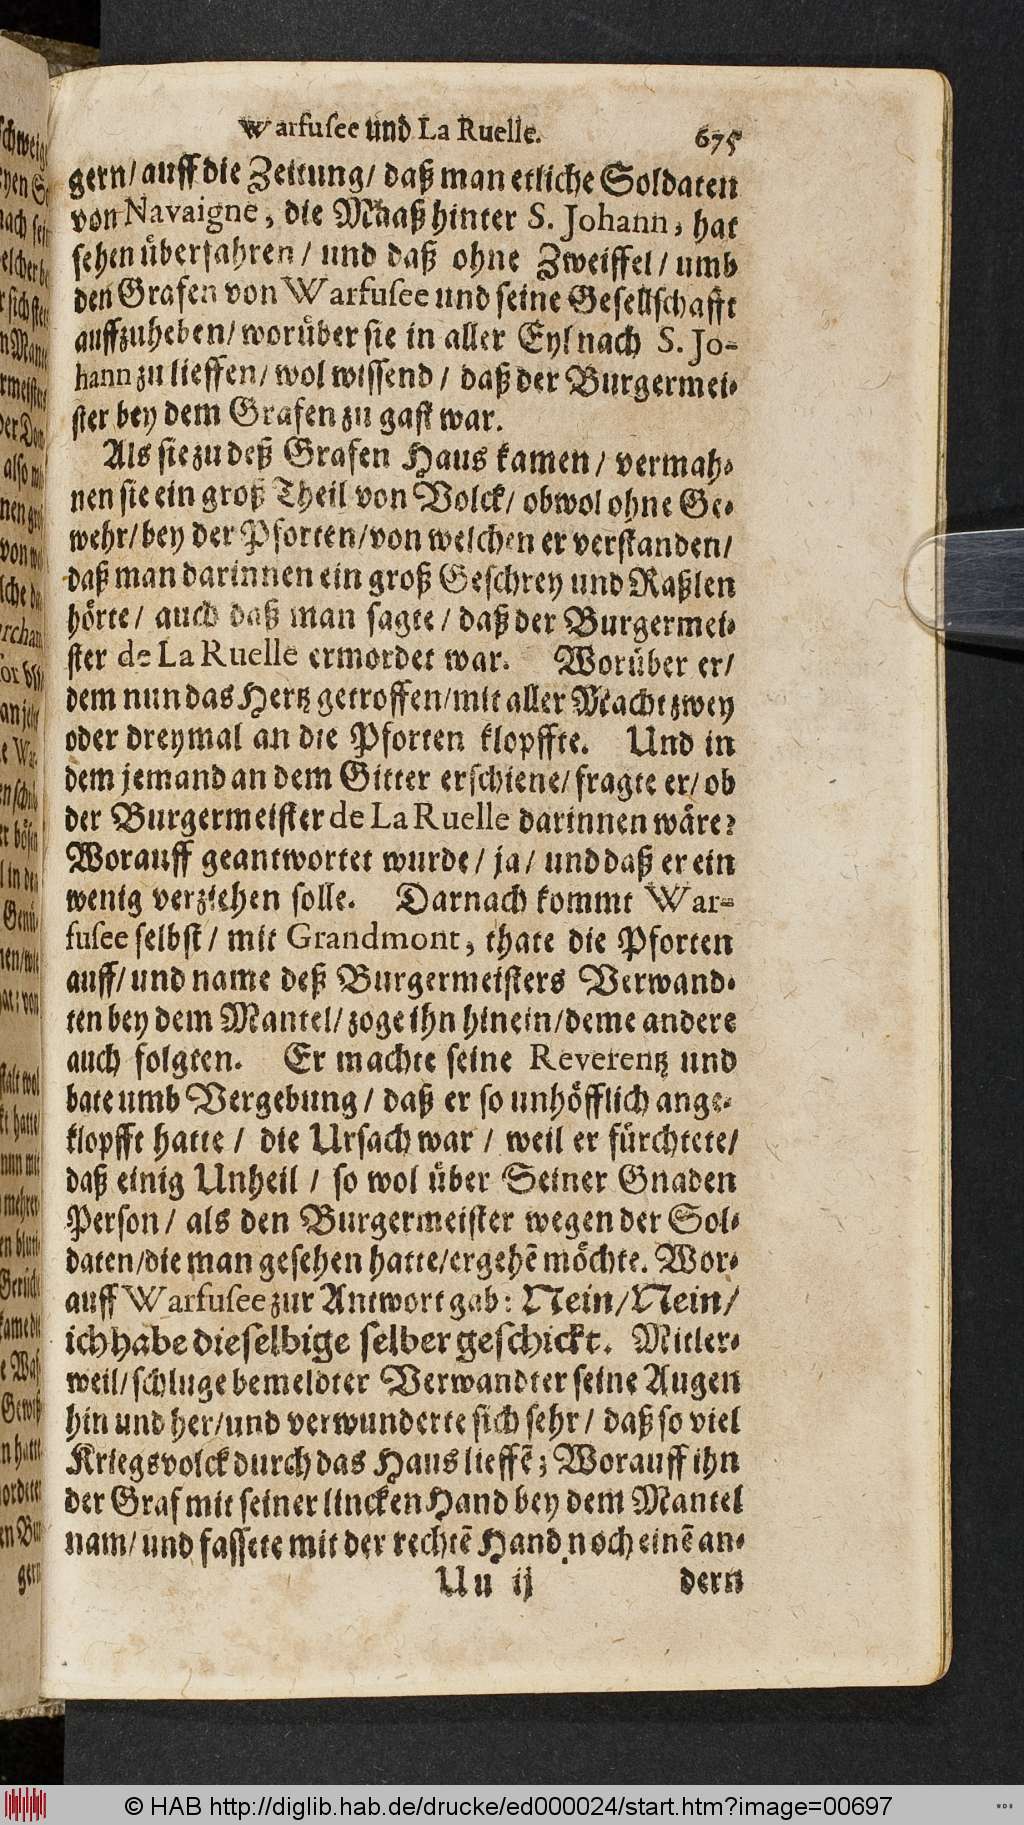 Warfusee und La Ruelle. 675
gern/ auff die Zeitung/ daß man etliche Soldaten
von Navaigne, die Maaß hinter S. Johann, hat
sehen überfahren / und daß ohne Zweiffel / umb
den Grafen von Warfusee und seine Gesellschafft
auffzuheben/ worüber sie in aller Eyl nach S. Jo-
hann zu lieffen/ wol wissend / daß der Burgermei-
ster bey dem Grafen zu gast war.
Als sie zu deß Grafen Haus kamen / vermah-
nen sie ein groß Theil von Volck/ obwol ohne Ge-
wehr/ bey der Pforten/ von welchen er verstanden/
daß man darinnen ein groß Geschrey und Raßlen
hörte/ auch daß man sagte / daß der Burgermei-
ster de La Ruelle ermordet war. Worüber er/
dem nun das Hertz getroffen/ mit aller Macht zwey
oder dreymal an die Pforten klopffte. Und in
dem jemand an dem Gitter erschiene/ fragte er/ ob
der Burgermeister de La Ruelle darinnen wäre?
Worauff geantwortet wurde/ ja/ und daß er ein
wenig verziehen solle. Darnach kommt War-
fusee selbst / mit Grandmont, thate die Pforten
auff/ und name deß Burgermeisters Verwand-
ten bey dem Mantel/ zoge ihn hinein/ deme andere
auch folgten. Er machte seine Reverentz und
bate umb Vergebung / daß er so unhöfflich ange-
klopfft hatte / die Ursach war / weil er fürchtete/
daß einig Unheil / so wol über Seiner Gnaden
Person / als den Burgermeister wegen der Sol-
daten/ die man gesehen hatte/ ergehẽ möchte. Wor-
auff Warfusee zur Antwort gab: Nein/ Nein/
ich habe dieselbige selber geschickt. Mitler-
weil/ schluge bemeldter Verwandter seine Augen
hin und her/ und verwunderte sich sehr / daß so viel
Kriegsvolck durch das Haus lieffẽ; Worauff ihn
der Graf mit seiner lincken Hand bey dem Mantel
nam/ und fassete mit der rechtẽ Hand noch einẽ an-
Uu ij dern
© HAB http://diglib.hab.de/drucke/ed000024/start.htm?image=00697